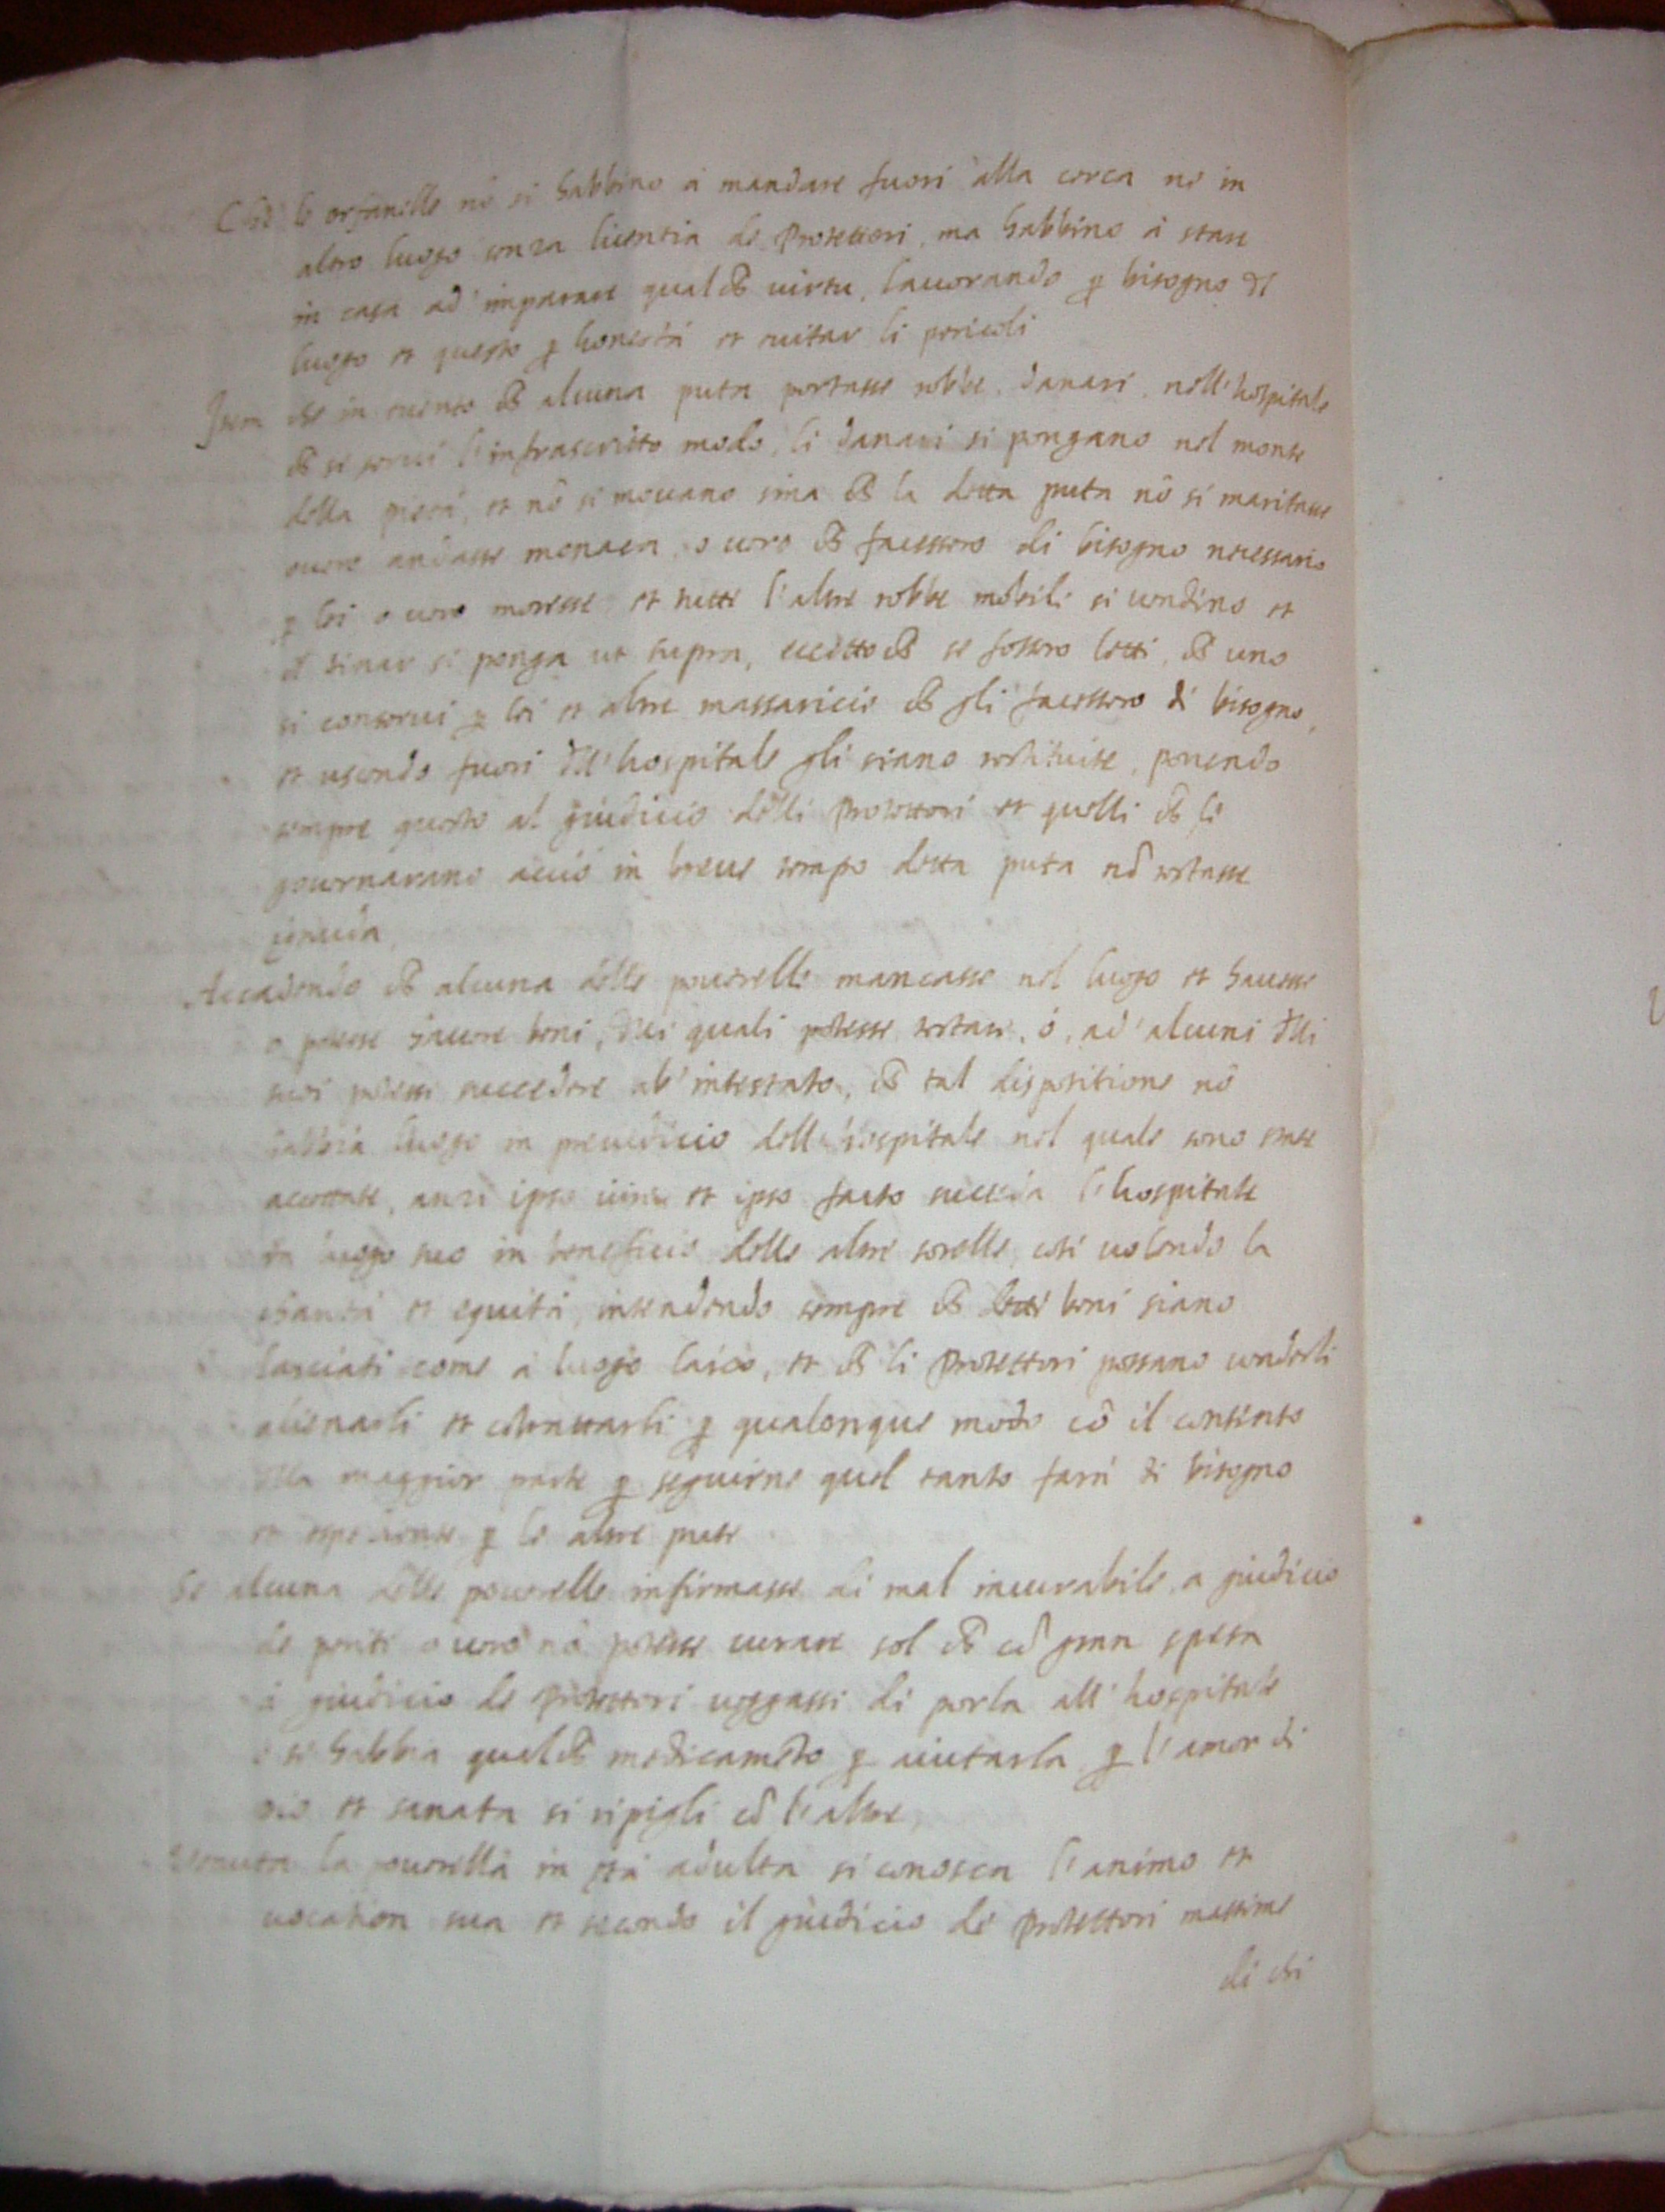 Che le orfanelle nō si habbino à mandare fuori alla cerca ne in
altro luogo senza licentia de Protettori, ma habbino à stare
in casa ad imparare qualch̃ virtu, lauorando ꝑ bisogno dl̃
luogo et questo ꝑ honestà et euitar li pericoli
Item che in euento ch̃ alcuna puta portasse robbe, danari, nell'hospitale
ch̃ se serui l'infrascritto modo, li danari si pongano nel monte
della pietà, et nō si mouano sina ch̃ la detta puta nō si maritasse
ouero andasse monaca, o uero ch̃ facessero di bisogno necessario
ꝑ lei o uero moresse et tutte l'altre robbe mobili si uendino et
il dinar si ponga ut supra, eccetto ch̃ se fossero letti, ch̃ uno
si conserui ꝑ lei et altre massaricie ch̃ gli facessero di bisogno,
et uscendo fuori dll' hospitale gli siano restituite, ponendo
sempre questo al giudicio delli Protettori et quelli ch̃ le
gouernarano acciò in breue tempo detta puta nō restasse
ignuda
Accadendo ch̃ alcuna delle pouerelle mancasse nel luogo et hauesse
o potesse hauere beni, dlli quali potesse testare, ò, ad alcuni dlli
suoi potesse succedere ab intestato, ch̃ tal dispositione nō
habbia luogo in preiudicio dell'hospitale nel quale sono state
accettate, anzi ipso iure et ipso facto succeda l'hospitale
in luogo suo in beneficio delle altre sorelle, così uolendo la
charità et equità, intendendo sempre ch̃ detti beni siano
lasciati come à luogo laico, et ch̃ li Protettori possano uenderli
alienarli et ꝑ qualonque modo cō il consenso
dlla maggior parte ꝑ seguirne quel tanto farà di bisogno
et espediente ꝑ le altre pute
Se alcuna delle pouerelle infirmasse di mal incurabile a giudicio
de periti o uero nō potesse curare sol ch̃ cō gran spesa
à giudicio de Protettori ueggassi di porla all'hospitale
o se habbia qualch̃ medicamēto ꝑ aiutarla ꝑ l'amor di
Dio et sanata si ripigli cō l'altre
Venuta la pouerella in età adulta si conosca l'animo et
uocation sua et secondo il giudicio de Protettori massime
di chi